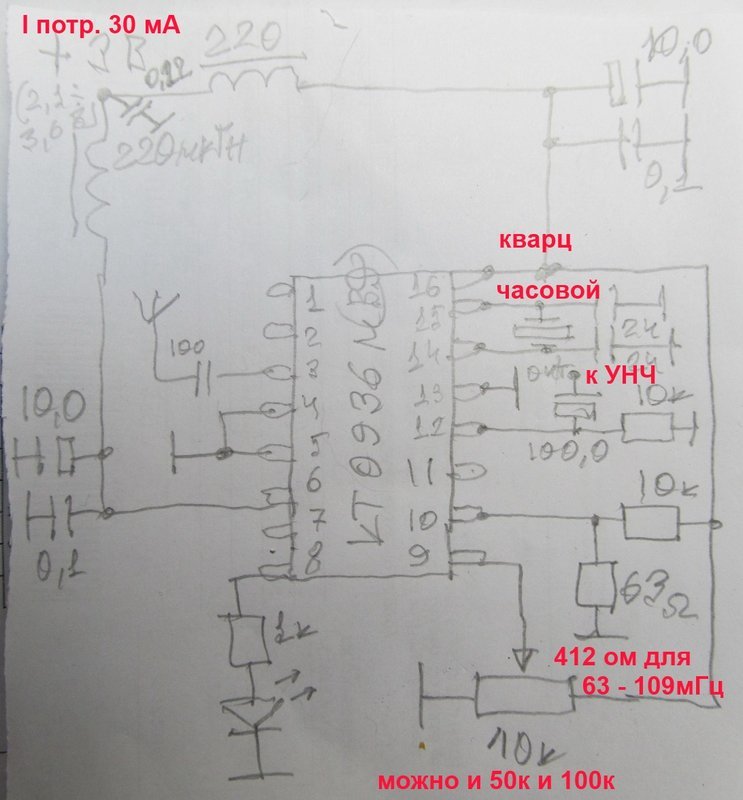 I потр. 30 мА
220
+ 3 В
(2,1÷
3,6 В)
220мкГн
10,0
0,1
кварц
часовой
1
2
3
4
5
6
7
8
16
15
14
13
12
11
10
9
100
24
к УНЧ
10к
100,0
10,0
0,1
10к
63Ω
1к
10к
412 ом для
63 - 109мГц
можно и 50к и 100к